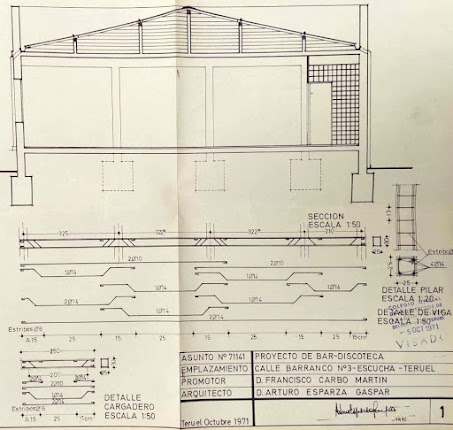 SECCION
ESCALA 1:50
325 322⁵ 322⁵ 210
2Ø10
1Ø14
1Ø14 1Ø14
2Ø14 2Ø14
1Ø14 1Ø14
2Ø10
Estribos Ø6
A 15 25 15 25 15 25 15cm
Estribos
4Ø14
25
25
DETALLE PILAR
ESCALA 1:20
DETALLE DE VIGA
ESCALA 1:50
5 OCT 1971
VISADO
250
200
2Ø14
Estribos Ø6
A 15 25 15cm
DETALLE
CARGADERO
ESCALA 1:50
ASUNTO Nº 71141 PROYECTO DE BAR-DISCOTECA
EMPLAZAMIENTO CALLE BARRANCO Nº3-ESCUCHA -TERUEL
PROMOTOR D. FRANCISCO CARBO MARTIN
ARQUITECTO D. ARTURO ESPARZA GASPAR
Teruel Octubre 1971
1